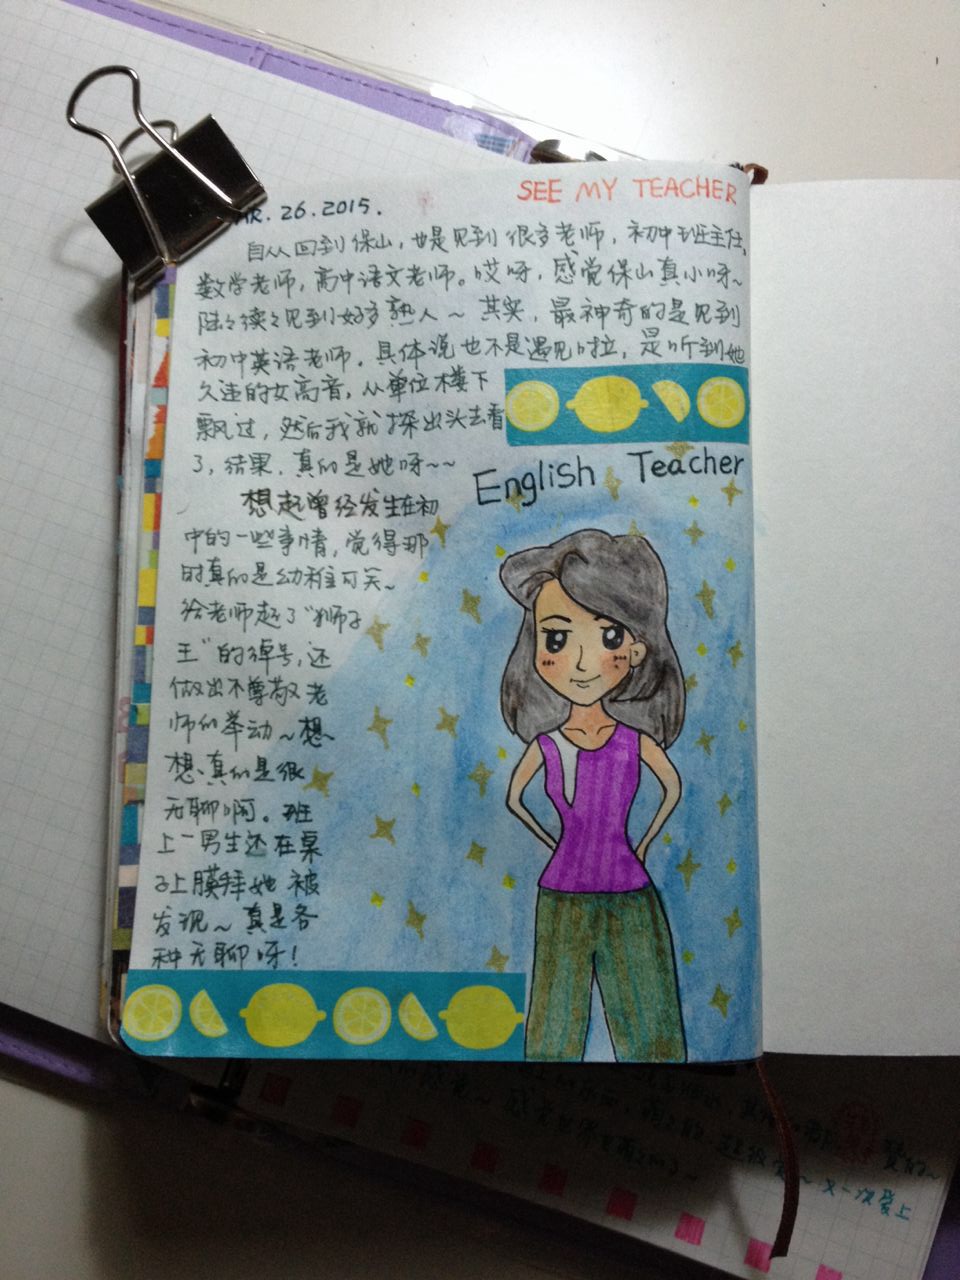 SEE MY TEACHER
AR. 26. 2015.
自从回到保山，也是见到很多老师，初中班主任，
数学老师，高中语文老师。哎呀，感觉保山真小呀～
陆々续々见到好多熟人～ 其实，最神奇的是见到
初中英语老师，具体说也不是遇见啦，是听到她
久违的女高音，从单位楼下
飘过，然后我就探出头去看
了，结果，真的是她呀~~
English Teacher
想起曾经发生在初
中的一些事情，觉得那
时真的是幼稚可笑~
给老师起了“狮子
王”的绰号，还
做出不尊敬老
师的举动～想
想，真的是很
无聊啊。班
上一男生还在桌
子上膜拜她 被
发现～ 真是各
种无聊呀！
又一次爱上